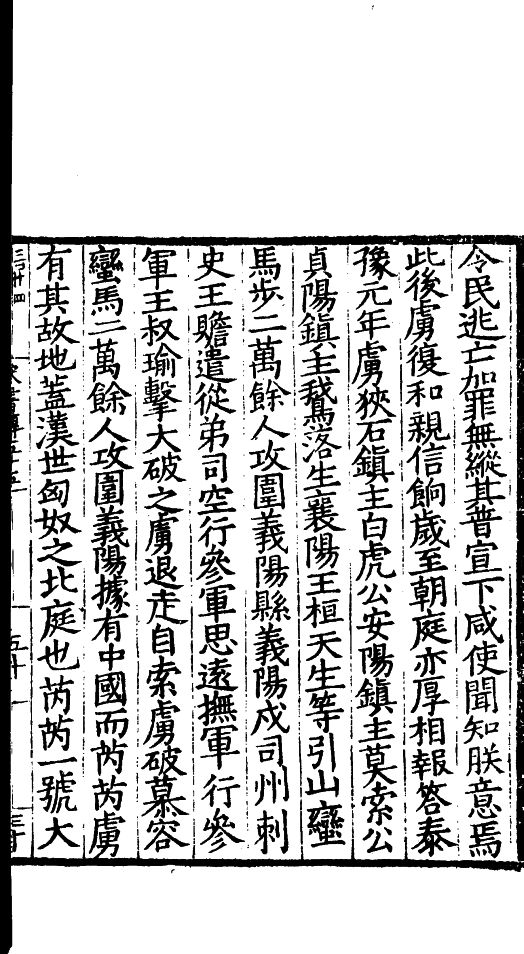 令民逃亡加罪無縱其普宣下咸使聞知朕意焉
此後虜復和親信餉歲至朝庭亦厚相報答泰
豫元年虜狹石鎮主白虎公安陽鎮主莫索公
貞陽鎮主鵝落生襄陽王桓天生等引山蠻
馬步二萬餘人攻圍義陽縣義陽戍司州刺
史王贍遣從弟司空行參軍思遠撫軍行參
軍王叔瑜擊大破之虜退走自索虜破慕容
蠻馬二萬餘人攻圍義陽據有中國而芮芮虜
有其故地蓋漢世匈奴之北庭也芮芮一號大
五十